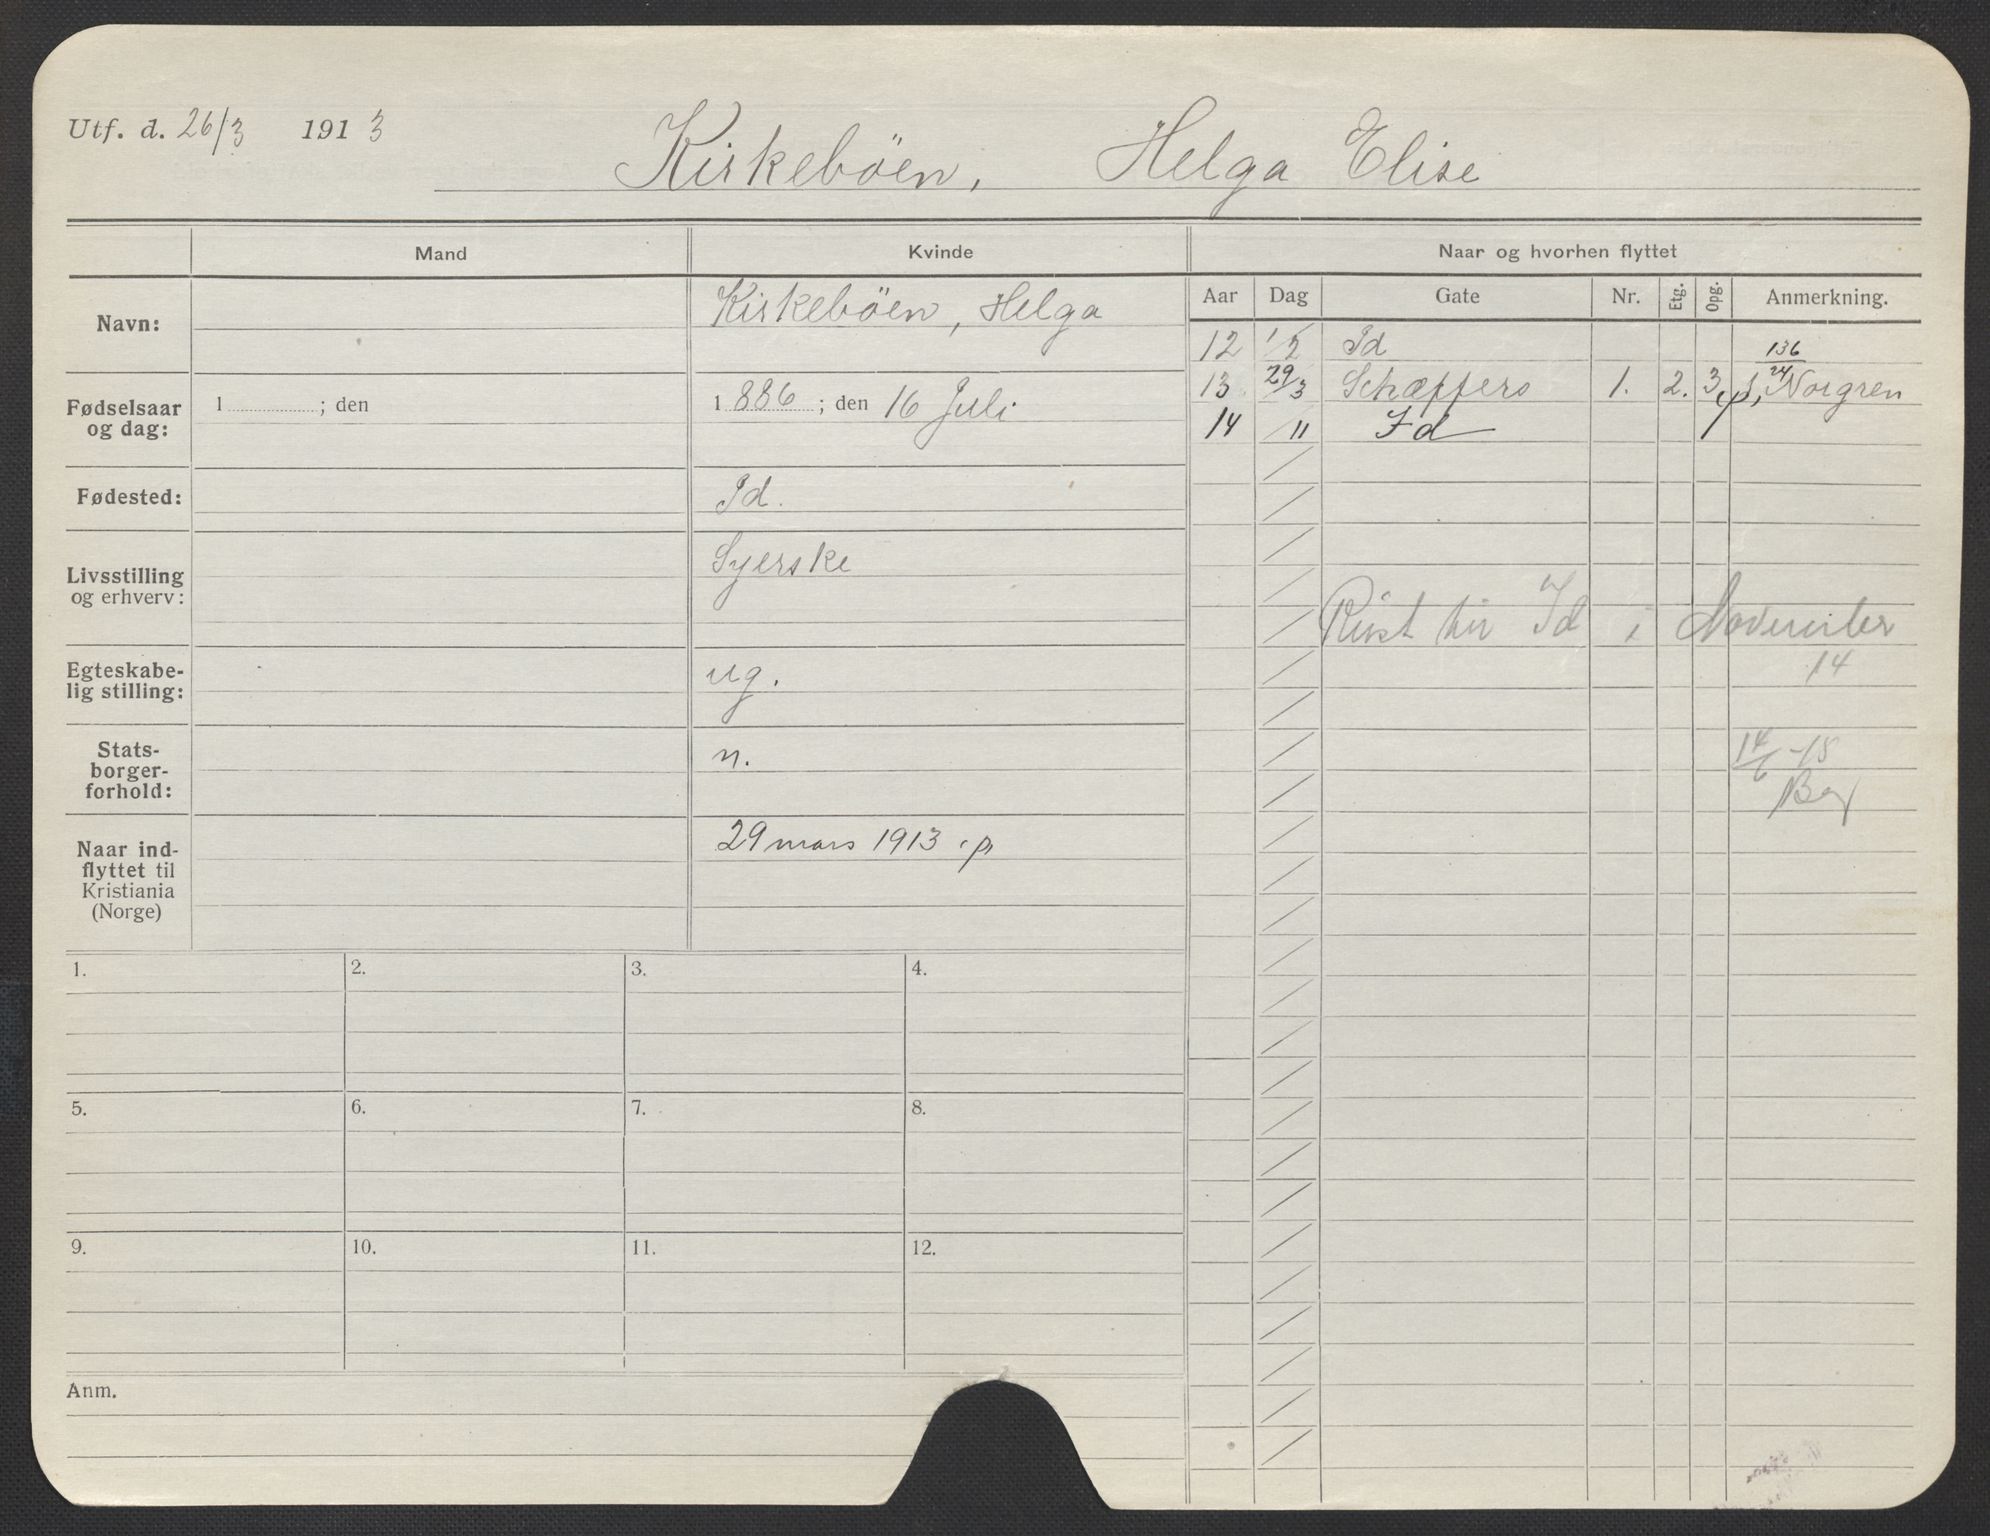 Utf. d. 26/3 1913
Kirkeböen, Helga Elise
Mand
Kvinde
Naar og hvorhen flyttet
Navn:
Kirkeböen, Helga
Fødselsaar og dag:
1 ; den
1 886 ; den 16 Juli
Fødested:
Id.
Livsstilling og erhverv:
Syerske
Egteskabe-
lig stilling:
ug.
Stats-
borger-
forhold:
n.
Naar ind-
flyttet til
Kristiania
(Norge)
29 mars 1913
Aar Dag Gate Nr. Etg. Opg. Anmerkning.
12 1/2 Id
136
24
13 29/3 Schæffers 1. 2. 3 Norgren
14 /11 Id
Reist til Id i November
14
14/6 -18
1. 2. 3. 4.
5. 6. 7. 8.
9. 10. 11. 12.
Anm.